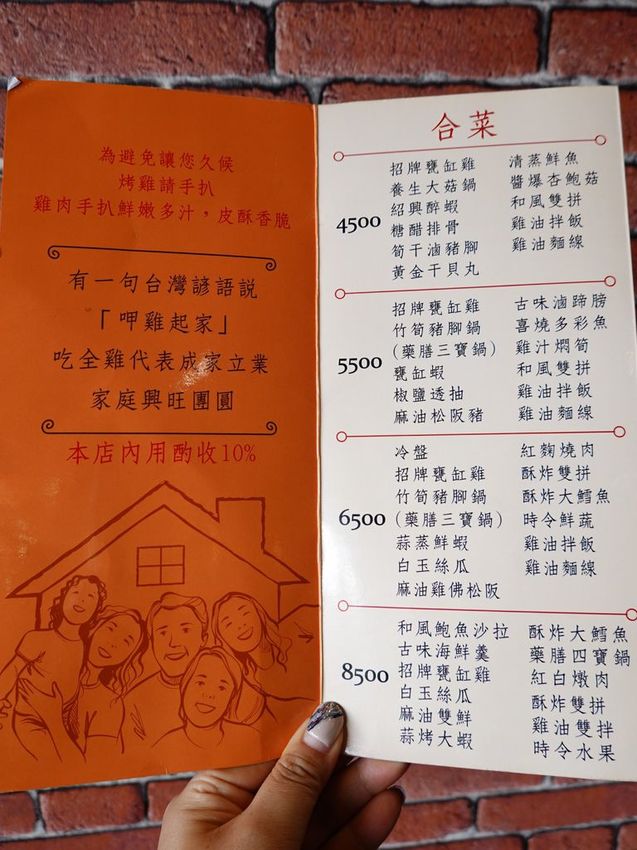 為避免讓您久候
烤雞請手扒
雞肉手扒鮮嫩多汁，皮酥香脆
有一句台灣諺語說
「呷雞起家」
吃全雞代表成家立業
家庭興旺團圓
本店內用酌收10%
合菜
4500
招牌甕缸雞
養生大菇鍋
紹興醉蝦
糖醋排骨
筍干滷豬腳
黃金干貝丸
清蒸鮮魚
醬爆杏鮑菇
和風雙拼
雞油拌飯
雞油麵線
5500
招牌甕缸雞
竹筍豬腳鍋
(藥膳三寶鍋)
甕缸蝦
椒鹽透抽
麻油松阪豬
古味滷蹄膀
喜燒多彩魚
雞汁燜筍
和風雙拼
雞油拌飯
雞油麵線
6500
冷盤
招牌甕缸雞
竹筍豬腳鍋
(藥膳三寶鍋)
蒜蒸鮮蝦
白玉絲瓜
麻油雞佛松阪
紅麴燒肉
酥炸雙拼
酥炸大鱈魚
時令鮮蔬
雞油拌飯
雞油麵線
8500
和風鮑魚沙拉
古味海鮮羹
招牌甕缸雞
白玉絲瓜
麻油雙鮮
蒜烤大蝦
酥炸大鱈魚
藥膳四寶鍋
紅白燉肉
酥炸雙拼
雞油雙拌
時令水果